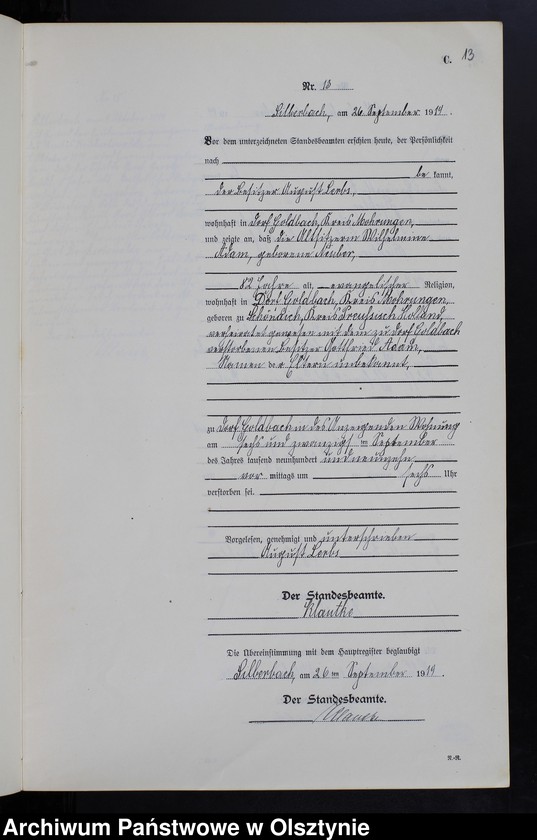 C. 13
Nr. 13
Silberbach, am 26 September 1919.
Vor dem unterzeichneten Standesbeamten erschien heute, der Persönlichkeit
nach
be kannt,
der Besitzer August Lerbs,
wohnhaft in Dorf Goldbach, Kreis Mohrungen,
und zeigte an, daß die Altsitzerin Wilhelmine
Adam, geborene Neuber,
82 Jahre alt, evangelischer Religion,
wohnhaft in Dorf Goldbach, Kreis Mohrungen,
geboren zu Schönaich, Kreis Preussisch Holland,
verheiratet gewesen mit dem zu Dorf Goldbach
verstorbenen Besitzer Gottfried Adam,
Namen der Eltern unbekannt,
zu Dorf Goldbach in des Anzeigenden Wohnung
am sechs und zwanzigsten September
des Jahres tausend neunhundert und neunzehn
vor mittags um sechs Uhr
verstorben sei.
Vorgelesen, genehmigt und unterschrieben
August Lerbs
Der Standesbeamte.
Klautke
Die Übereinstimmung mit dem Hauptregister beglaubigt
Silberbach, am 26 ten September 1919.
Der Standesbeamte.
R.-R.
Archiwum Państwowe w Olsztynie